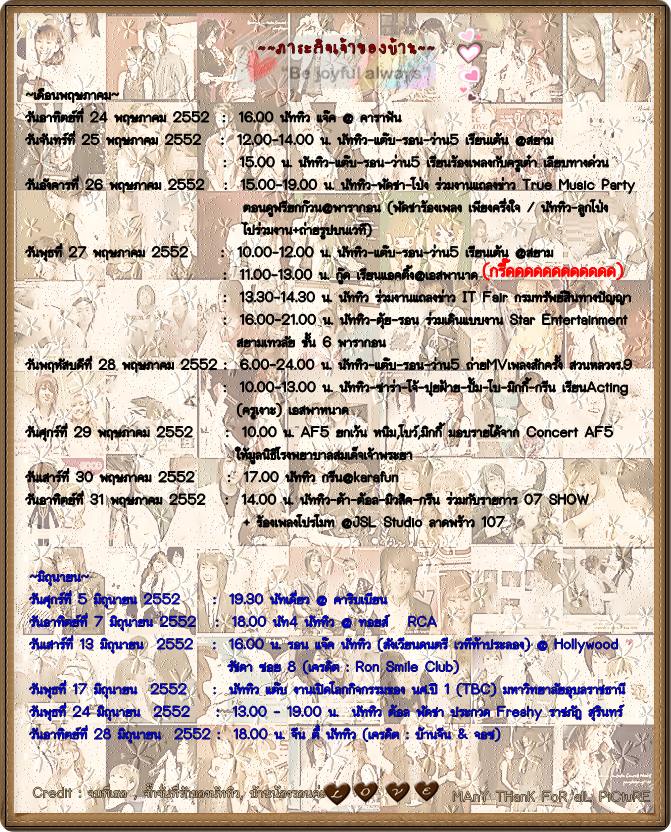 ~~ภาระกิจเจ้าของบ้าน~~
Be joyful always
~เดือนพฤษภาคม~
วันอาทิตย์ที่ 24 พฤษภาคม 2552 : 16.00 นัททิว แจ๊ค @ คาราฟัน
วันจันทร์ที่ 25 พฤษภาคม 2552 : 12.00-14.00 น. นัททิว-แต๊บ-รอน-ว่าน5 เรียนเต้น @สยาม
: 15.00 น. นัททิว-แต๊บ-รอน-ว่าน5 เรียนร้องเพลงกับครูเต๋า เลียบทางด่วน
วันอังคารที่ 26 พฤษภาคม 2552 : 15.00-19.00 น. นัททิว-พัดชา-โป่ง ร่วมงานแถลงข่าว True Music Party
ตอนคูฟรียกก๊วน@พารากอน (พัดชาร้องเพลง เพียงครึ่งใจ / นัททิว-ลูกโป่ง
ไปร่วมงาน+ถ่ายรูปบนเวที)
วันพุธที่ 27 พฤษภาคม 2552 : 10.00-12.00 น. นัททิว-แต๊บ-รอน-ว่าน5 เรียนเต้น @สยาม
: 11.00-13.00 น. กู๊ด เรียนแอคติ้ง@เอสพานาด (กรี๊ดดดดดดดดดดดดด)
: 13.30-14.30 น. นัททิว ร่วมงานแถลงข่าว IT Fair กรมทรัพย์สินทางปัญญา
: 16.00-21.00 น. นัททิว-ตุ้ย-รอน ร่วมเดินแบบงาน Star Entertainment
สยามเทวลัย ชั้น 6 พารากอน
วันพฤหัสบดีที่ 28 พฤษภาคม 2552 : 6.00-24.00 น. นัททิว-แต๊บ-รอน-ว่าน5 ถ่ายMVเพลงสักครั้ง สวนหลวงร.9
: 10.00-13.00 น. นัททิว-ซาร่า-โจ้-ปุยฝ้าย-ปั้ม-โบ-มิกกี้-กรีน เรียนActing
(ครูเงาะ) เอสพาทนาด
วันศุกร์ที่ 29 พฤษภาคม 2552 : 10.00 น. AF5 ยกเว้น หนิม,โบว์,มิกกี้ มอบรายได้จาก Concert AF5
ให้มูลนิธิโรงพยาบาลสมเด็จเจ้าพระยา
วันเสาร์ที่ 30 พฤษภาคม 2552 : 17.00 นัททิว กรีน@karafun
วันอาทิตย์ที่ 31 พฤษภาคม 2552 : 14.00 น. นัททิว-ต้า-ต้อล-มิวสิค-กรีน ร่วมกับรายการ 07 SHOW
+ ร้องเพลงโปรโมท @JSL Studio ลาดพร้าว 107
~มิถุนายน~
วันศุกร์ที่ 5 มิถุนายน 2552 : 19.30 นัทเดี่ยว @ คาริบเบียน
วันอาทิตย์ที่ 7 มิถุนายน 2552 : 18.00 นัท4 นัททิว @ ทอยส์ RCA
วันเสาร์ที่ 13 มิถุนายน 2552 : 16.00 น. รอน แจ๊ค นัททิว (สังเวียนดนตรี เวทีท้าประลอง) @ Hollywood
รัชดา ซอย 8 (เครดิต : Ron Smile Club)
วันพุธที่ 17 มิถุนายน 2552 : นัททิว แต๊บ งานเปิดโลกกิจกรรมของ นศ.ปี 1 (TBC) มหาวิทยาลัยอุบลราชธานี
วันพุธที่ 24 มิถุนายน 2552 : 13.00 - 19.00 น. นัททิว ต้อล พัดชา ประกวด Freshy ราชภัฏ สุรินทร์
วันอาทิตย์ที่ 28 มิถุนายน 2552 : 18.00 น. จีน ตี้ นัททิว (เครดิต : บ้านจีน & จอย)
Credit : LOVE MAnY THanK FoR aLL PiCtuRE